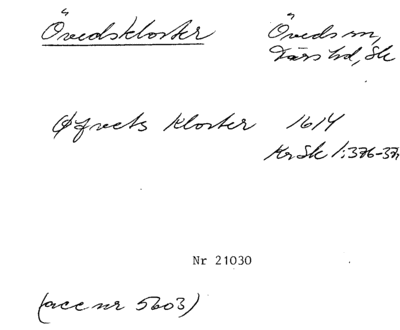 Övedskloster Öveds sn,
Färs hd, Sk
Øfvets Kloster 1614
KrSk 1:376-377
Nr 21030
(acc nr 5603)